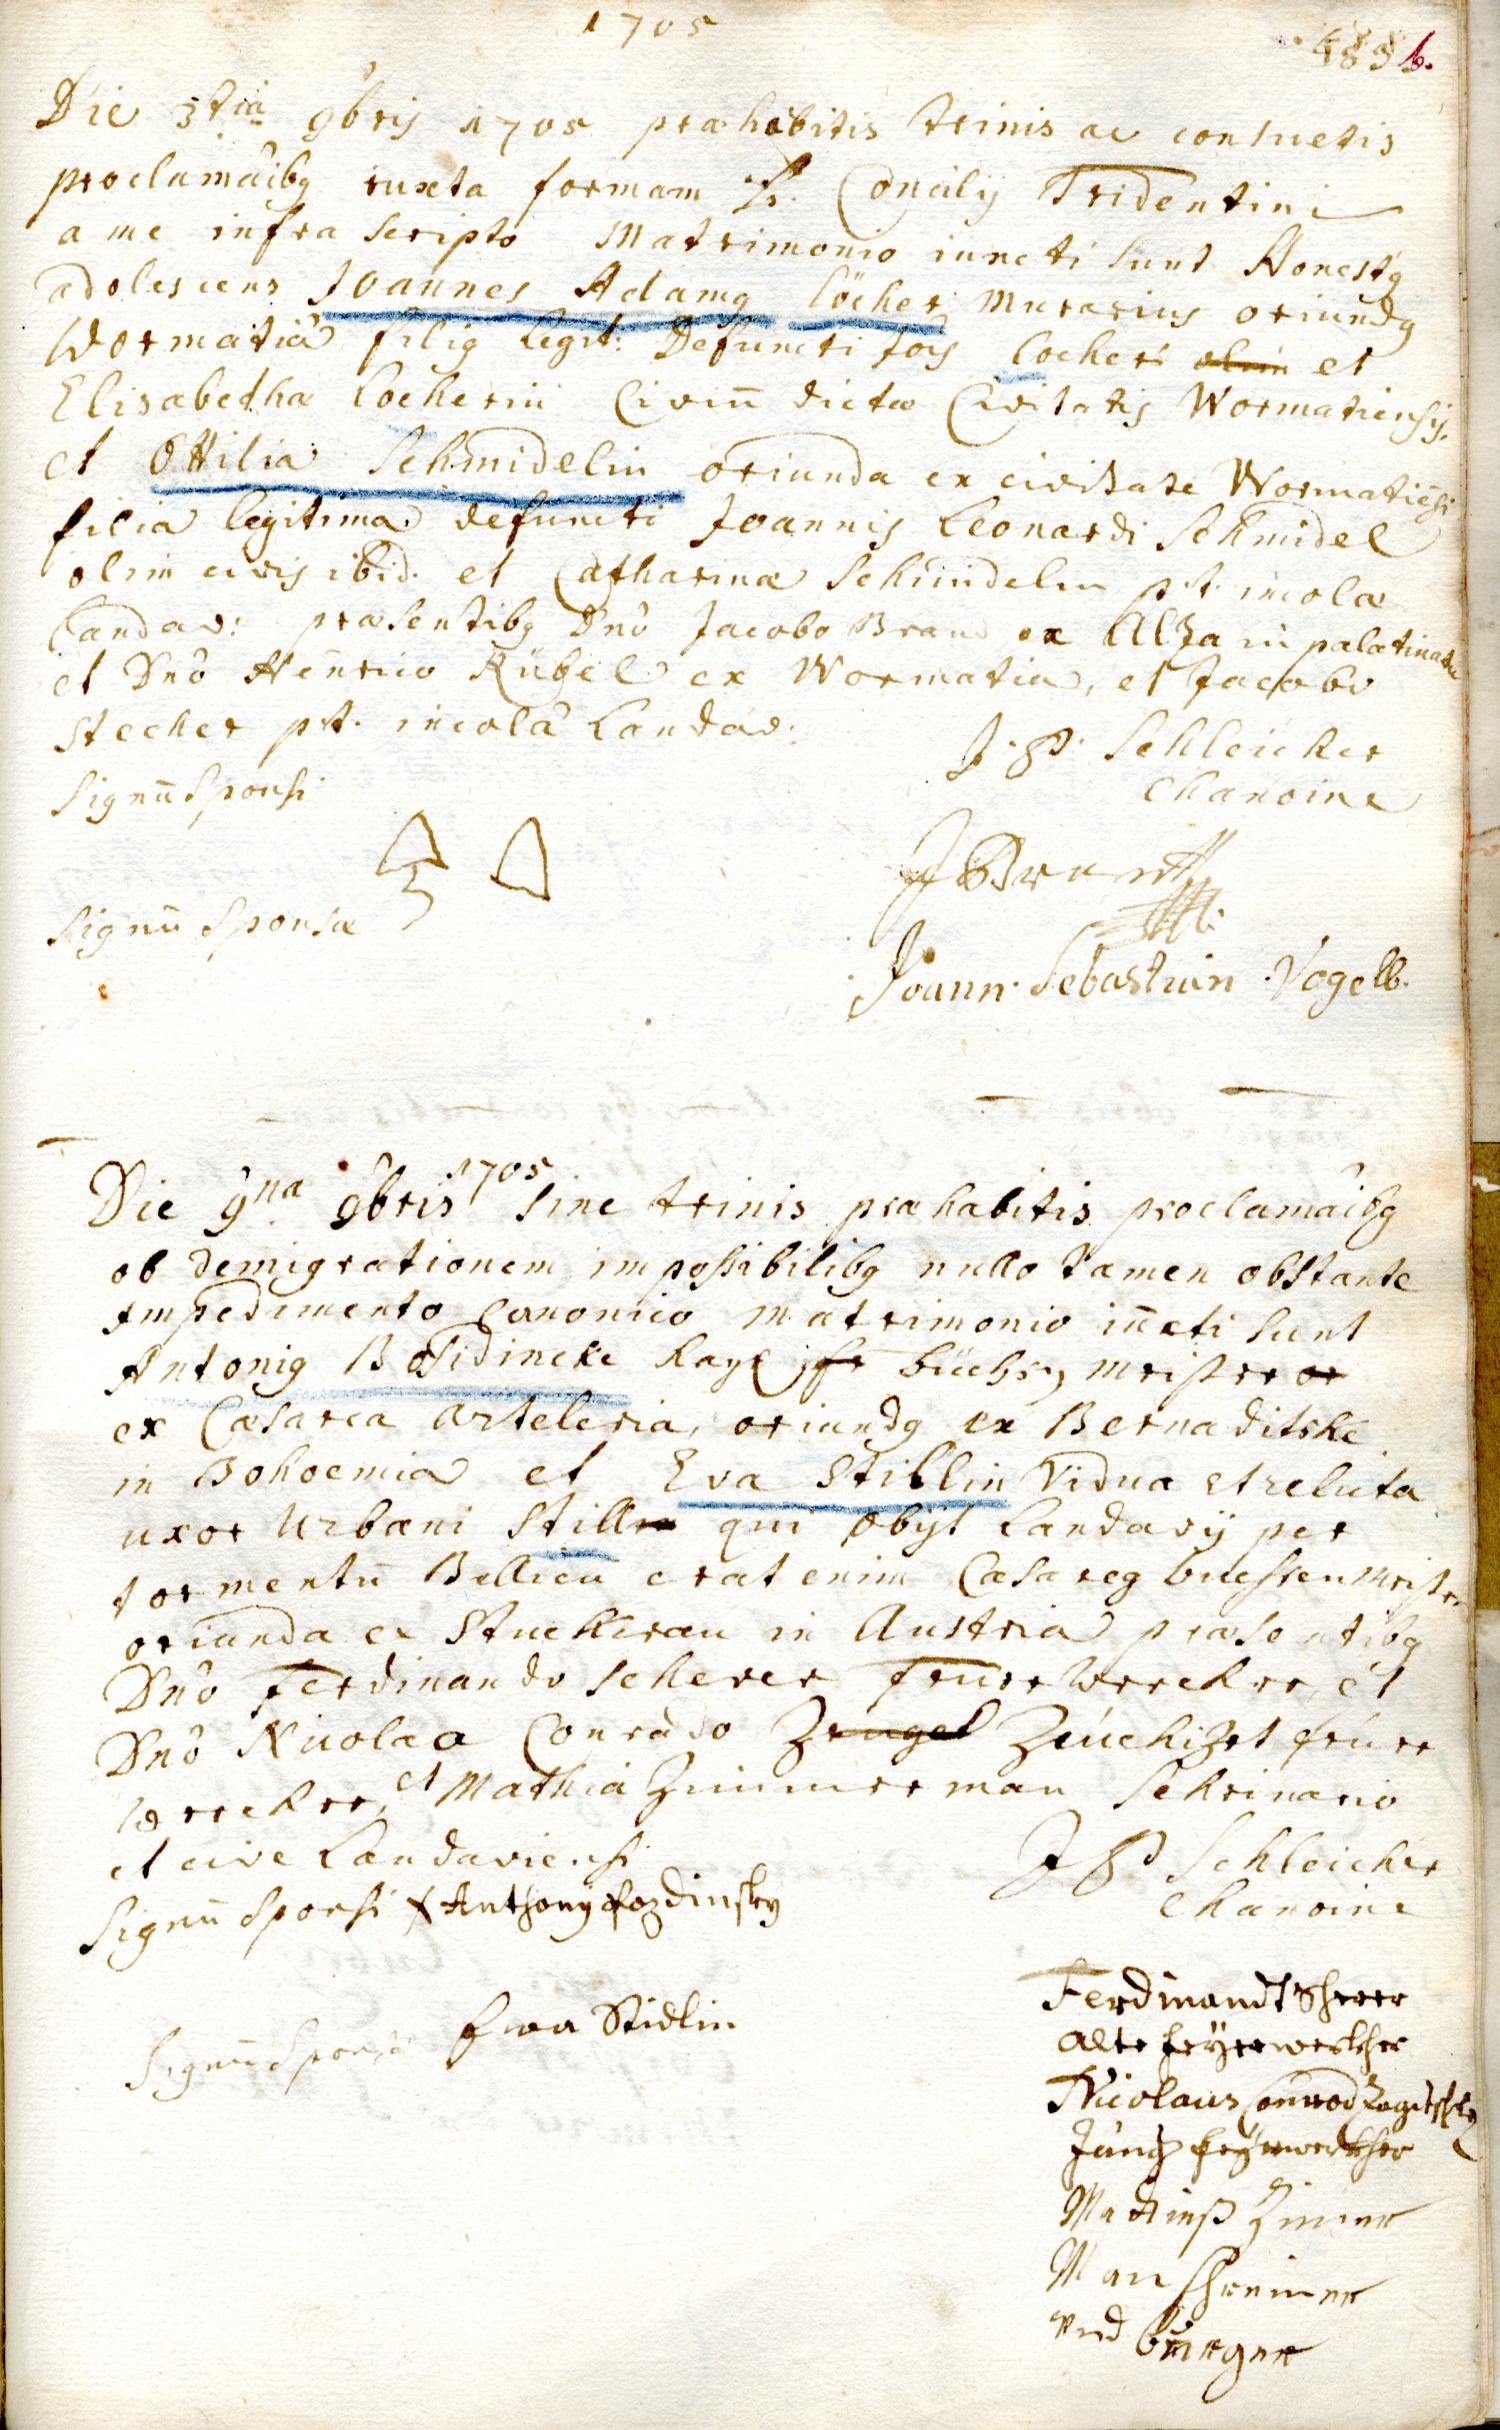 1705
483 b.
Die 3tia 9bris 1705 præhabitis trinis ac consuetis
proclamaibg iuxta formam Ss. Concilij Tridentini
a me infra scripto Matrimonio iuncti sunt Honestg
adolescens Joannes Adamg Löcher Murarius oriundg
Wormatia filig legit: Defuncti Jois Locheri olim et
Elisabetha Locherin Civiū dictæ Civitatis Wormatiensis.
et Ottilia Schmidelin oriunda ex civitate Wormatiēsi
filia legitima defuncti Joannis Leonardi Schmidel
olim civis ibid. et Catharinæ Schmidelin p.t. incolæ
Landav: præsentibg Dnō Jacobo Brand ex Alza in palatinatu
et Dnō Henrico Kübel ex Wormatia, et Jacobo
stecher p.t. incolâ Landav:
J. P. Schleicker
Chanoine
Signū Sponsi
J Brantt
Signū Sponsæ
Joann. Sebastian Vogell.
Die 9na 9bris 1705 sine trinis præhabitis proclamaibg
ob demigrationem impossibilibg nullo tamen obstante
Impedimento canonico Matrimonio iūcti sunt
Antonig Bosidincke Kayl büchsen Meister
ex Cæsarea Arteleria, oriundg ex Bernaditske
in Bohoemia et Eva Stillin vidua et relicta
uxor Urbani Still qui obijt Landavij per
tormentū Bellicū erat enim Cæsareg buchsenmeister
orianda ex Stuckerau in Austria præsentibg
Dnō Ferdinando Scherer feuerwercker, et
Dnō Nicolao Conrado Zeugel Zeuchizet feuer
wercker, et Mathia Zimmerman Schrinario
et cive Landaviensi
J P Schleicker
Chanoine
Signū Sponsi Anthonÿ Pozdinsky
Ewa Stidlin
Signū Sponsæ
Ferdinandt Scherer
alte feÿerwerkher
Nicolaus Conrod Zagitschky
Jung feÿrwerkher
Mattieß Zimer
Man schreiner
und burger